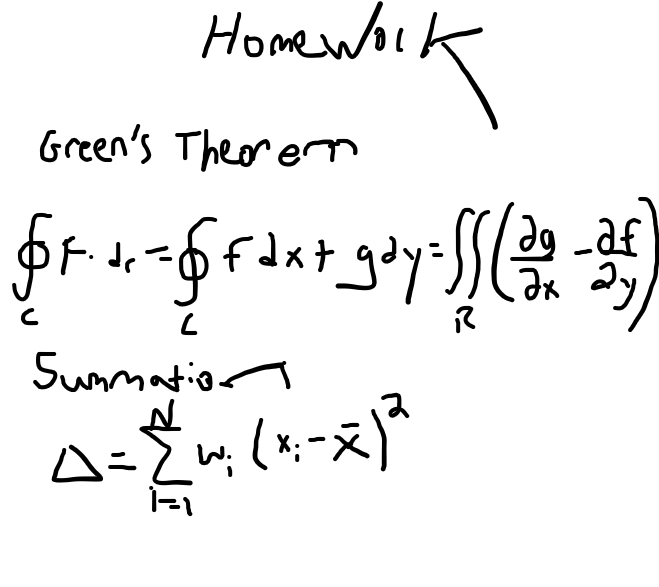 Homework
Green's Theorem
∮_C F · dr = ∮_C f dx + g dy = ∬_R (∂g/∂x − ∂f/∂y)
Summation
Δ = ∑_{i=1}^{N} w_i (x_i − x̄)^2